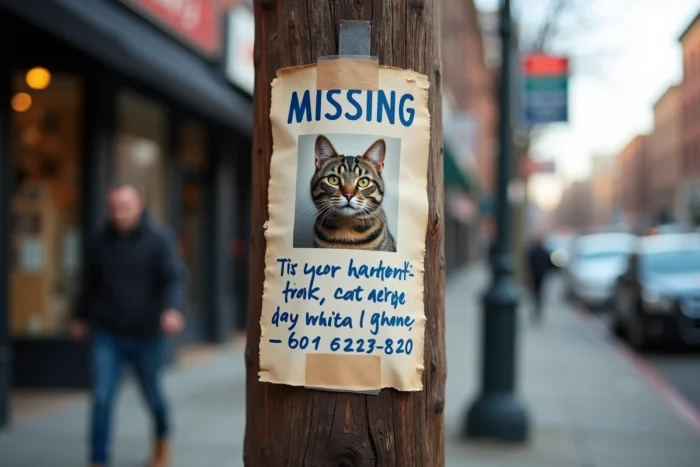 MISSING
Tis your hartentt-
tirk, cat aerge
day whita I ghane,
— 601 6223-820